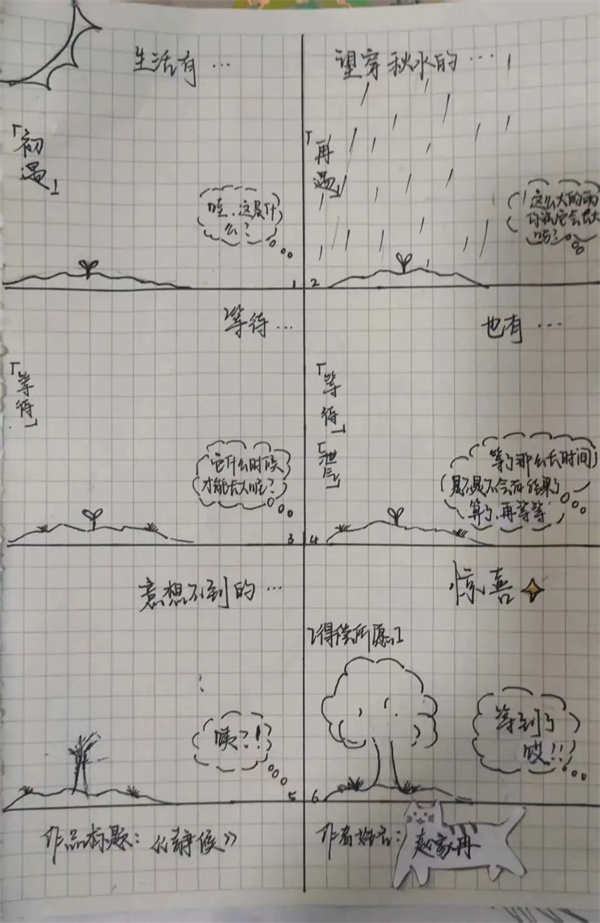 生活有…
「初遇」
哇，这是什
么？
1
望穿秋水的…
「再遇」
这么大的雨
你说它会长大
吗？
2
等待…
「等待」
它什么时候
才能长大呢？
3
也有…
「等待」
「泄气」
等了那么长时间
是不是不会有结果了
算了，再等等
4
意想不到的…
咦？！
5
惊喜
「得偿所愿」
等到了
哎！！
6
作品标题：《静候》
作者姓名：赵家冉